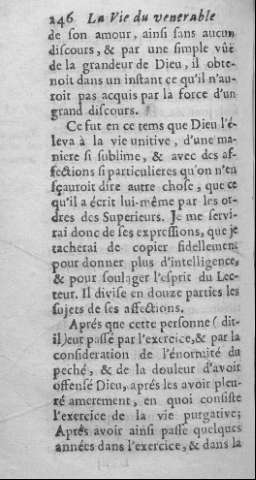 246 La Vie du venerable
de son amour, ainsi sans aucun
discours, & par une simple vûë
de la grandeur de Dieu, il obte-
noit dans un instant ce qu'il n'au-
roit pas acquis par la force d'un
grand discours.
Ce fut en ce tems que Dieu l'é-
leva à la vie unitive, d'une ma-
niere si sublime, & avec des af-
fections si particulieres qu'on n'en
sçauroit dire autre chose, que ce
qu'il a écrit lui-même par les or-
dres des Superieurs. Je me servi-
rai donc de ses expressions, que je
tacherai de copier fidellement
pour donner plus d'intelligence,
& pour soulager l'esprit du Lec-
teur. Il divise en douze parties les
sujets de ses affections.
Aprés que cette personne (dit-
il) eut passé par l'exercice, & par la
consideration de l'énormité du
peché, & de la douleur d'avoir
offensé Dieu, aprés les avoir pleu-
ré amerement, en quoi consiste
l'exercice de la vie purgative;
Aprés avoir ainsi passé quelques
années dans l'exercice, & dans la